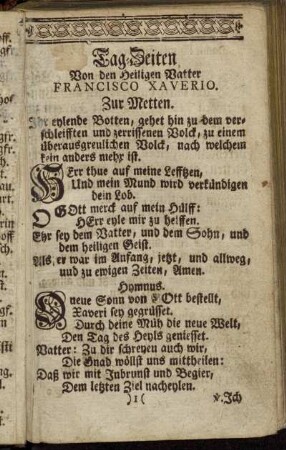 Tag-Zeiten
Von den Heiligen Vatter
FRANCISCO XAVERIO.
Zur Metten.
Ihr eylende Botten, gehet hin zu dem ver-
schleifften und zerrissenen Volck, zu einem
überausgreulichen Volck, nach welchem
kein anders mehr ist.
HErr thue auf meine Lefftzen,
Und mein Mund wird verkündigen
dein Lob.
O GOtt merck auf mein Hülff:
HErr eyle mir zu helffen.
Ehr sey dem Vatter, und dem Sohn, und
dem heiligen Geist.
Als er war im Anfang, jetzt, und allweg,
und zu ewigen Zeiten, Amen.
Hymnus.
O neue Sonn von GOtt bestellt,
Xaveri sey gegrüsset.
Durch deine Müh die neue Welt,
Den Tag des Heyls geniesset.
Vatter: Zu dir schreyen auch wir,
Die Gnad wöllst uns mittheilen:
Daß wir mit Inbrunst und Begier,
Dem letzten Ziel nacheylen.
)1( ℣.Ich